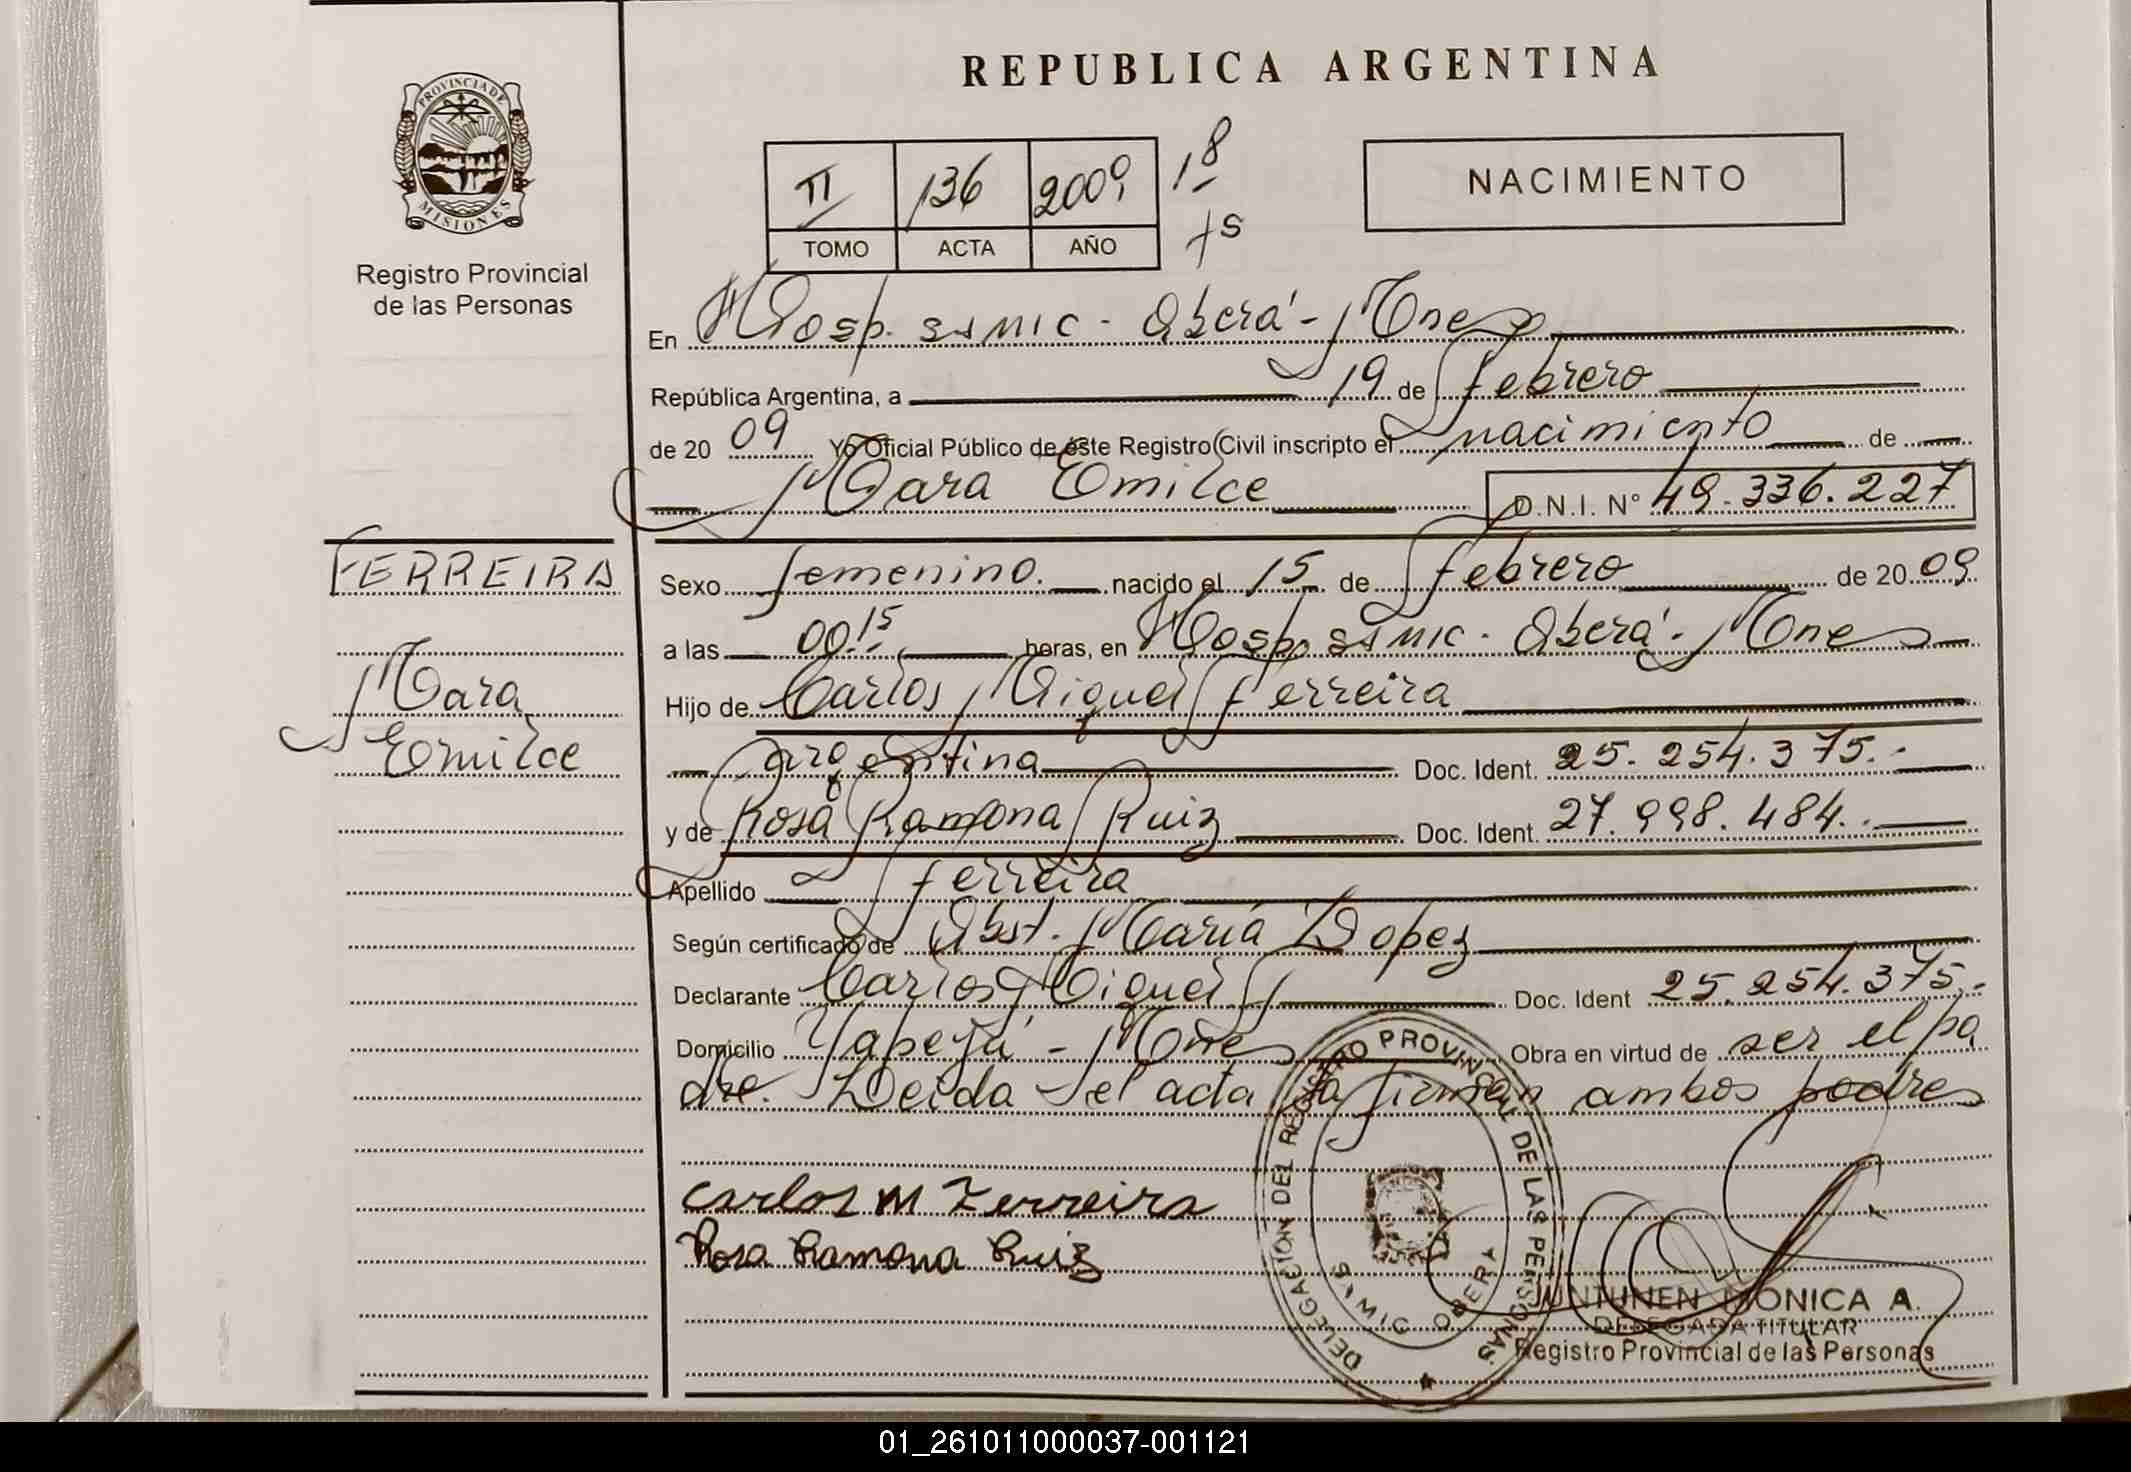 REPUBLICA ARGENTINA
PROVINCIA DE
MISIONES
Registro Provincial
de las Personas
II 136 2009
TOMO ACTA AÑO
18
NACIMIENTO
En Hosp. SAMIC - Oberá - Mnes
República Argentina, a 19 de febrero
de 2009 Yo Oficial Público de éste Registro Civil inscripto el nacimiento de
Mara Emilce D.N.I. N° 49.336.227
FERREIRA
Mara
Emilce
Sexo femenino. nacido el 15 de febrero de 2009
a las 00.15 horas, en Hosp. SAMIC - Oberá - Mnes
Hijo de Carlos Miguel Ferreira
argentina Doc. Ident. 25.254.375.-
y de Rosa Ramona Ruiz Doc. Ident. 27.998.484.-
Apellido Ferreira
Según certificado de Obst. María Lopez
Declarante Carlos Miguel F Doc. Ident 25.254.375.-
Domicilio Yapeyú - Mnes Obra en virtud de ser el pa
dre. Leida el acta la firman ambos padres
Carlos M Ferreira
Rosa Ramona Ruiz
DELEGACIÓN DEL REGISTRO PROVINCIAL DE LAS PERSONAS
JUNTUNEN MONICA A.
DELEGADA TITULAR
Registro Provincial de las Personas
01_261011000037-001121